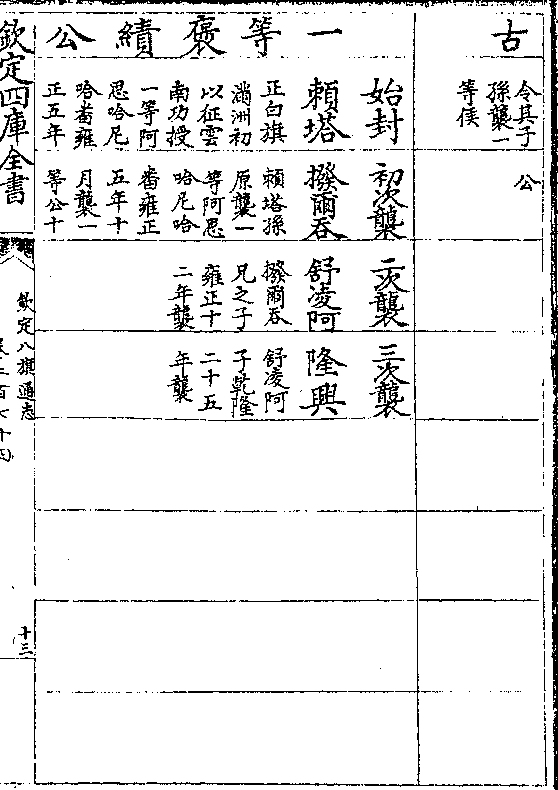 古
令其子
孫襲一
等侯
公
一等褒績公
始封
賴塔
正白旗
滿洲初
以征雲
南功授
一等阿
思哈尼
哈番雍
正五年
初次襲
撥爾吞
賴塔孫
原襲一
等阿思
哈尼哈
番雍正
五年十
月襲一
等公十
二次襲
舒淩阿
撥爾吞
兄之子
雍正十
二年襲
三次襲
隆興
舒淩阿
子乾隆
二十五
年襲
欽定四庫全書
欽定八旗通志
十三